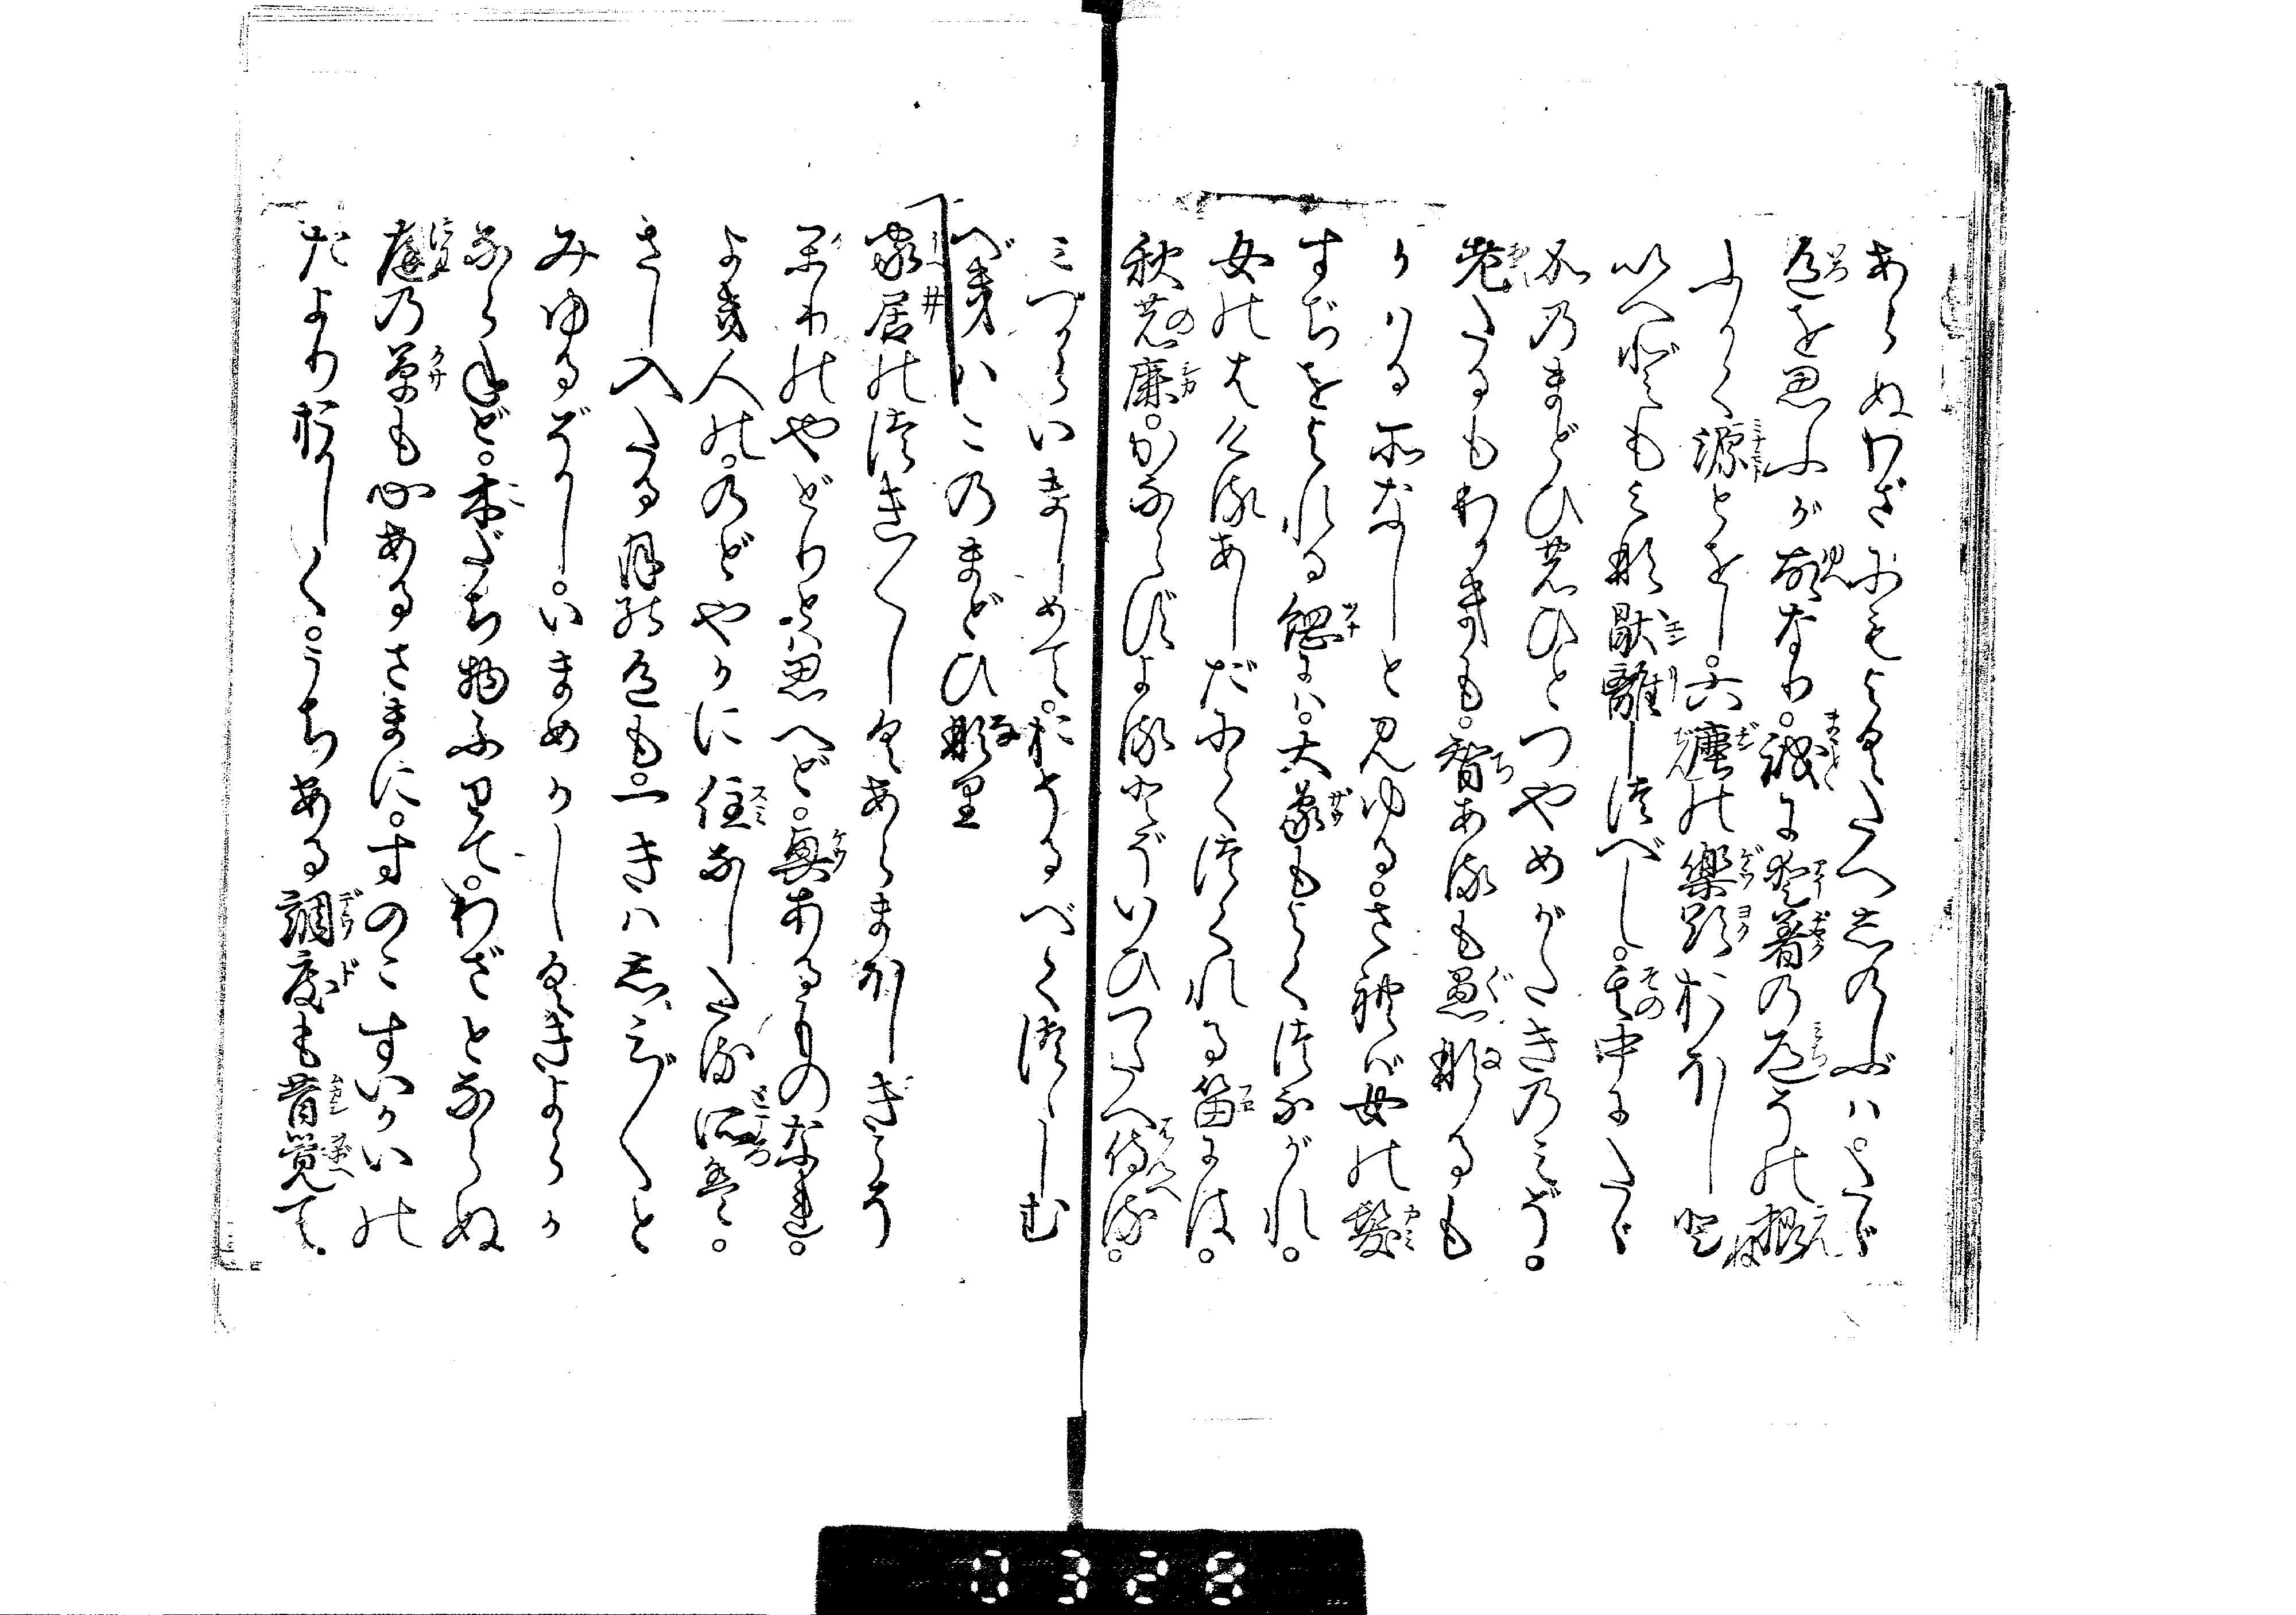 あらぬわざにもよくたへしのぶは。たゞ
色を思ふが故なり。誠に愛着の道その根
ふかく源とをし。六塵の楽欲おほしと
いへどもみな厭離しつべし。其中にたゞ
かのまどひのひとつやめがたきのみぞ。
老たるもわかきも。智あるも愚なるも
かはる所なしと見ゆる。されば女の髪
すぢをよれる綱には。大象もよくつながれ。
女のはける あしだにてつくれる笛には。
秋の鹿。かならずよるとぞいひつたへ侍る。
みづからいましめて。おそるべくつゝしむ
べきはこのまどひなり
家居のつき〴〵しくあらまほしきこそ
かりのやどりとは思へど。興あるものなれ。
よき人の。のどやかに住なしたる所は。
さし入たる月の色も。一きはしみ〴〵と
みゆるぞかし。いまめかしくきらゝか
ならねど。木だち物ふりて。わざとならぬ
庭の草も心あるさまに。すのこすいかいの
たよりおかしく。うちある調度も昔覚て
0328